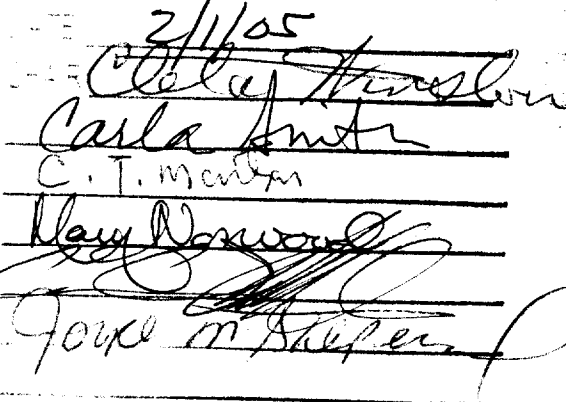 2/1/05
Cleta Winslow
Carla Smith
C. T. Martin
Mary Norwood
Joyce M Sheperd